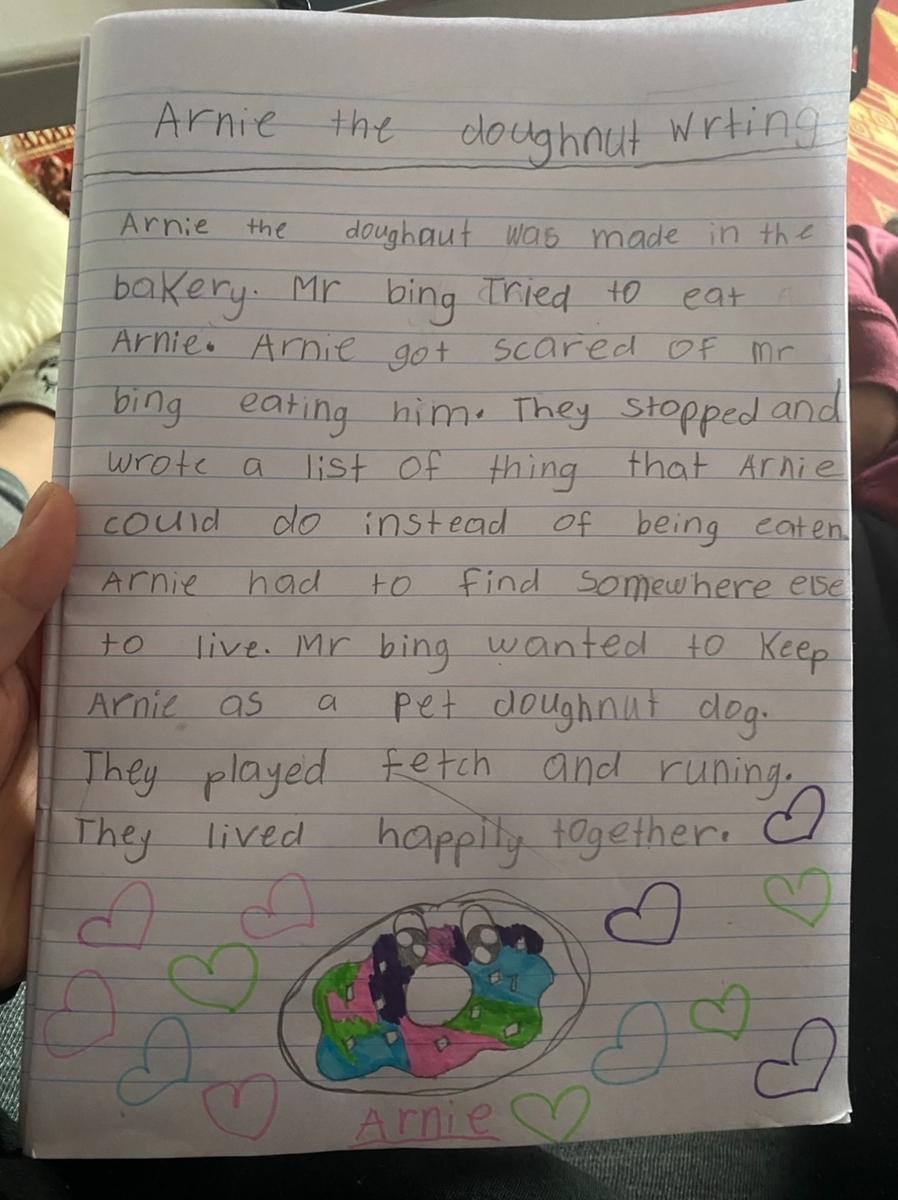 Arnie the doughnut Wrting
Arnie the doughaut was made in the
bakery. Mr bing Tried to eat
Arnie. Arnie got scared of mr
bing eating him. They stopped and
wrote a list of thing that Arnie
could do instead of being eaten.
Arnie had to find somewhere else
to live. Mr bing wanted to Keep
Arnie as a pet doughnut dog.
They played fetch and runing.
They lived happily together.
Arnie